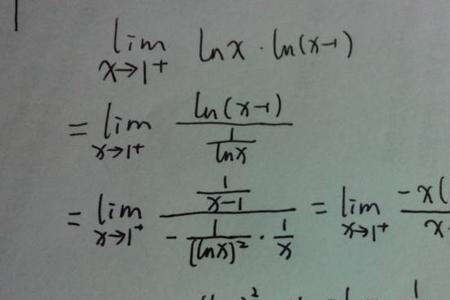 lim x→1⁺ lnx · ln(x-1)
= lim x→1⁺ ln(x-1) / (1/lnx)
= lim x→1⁺ (1/(x-1)) / (-1/(lnx)² · 1/x) = lim x→1⁺ -x( / x